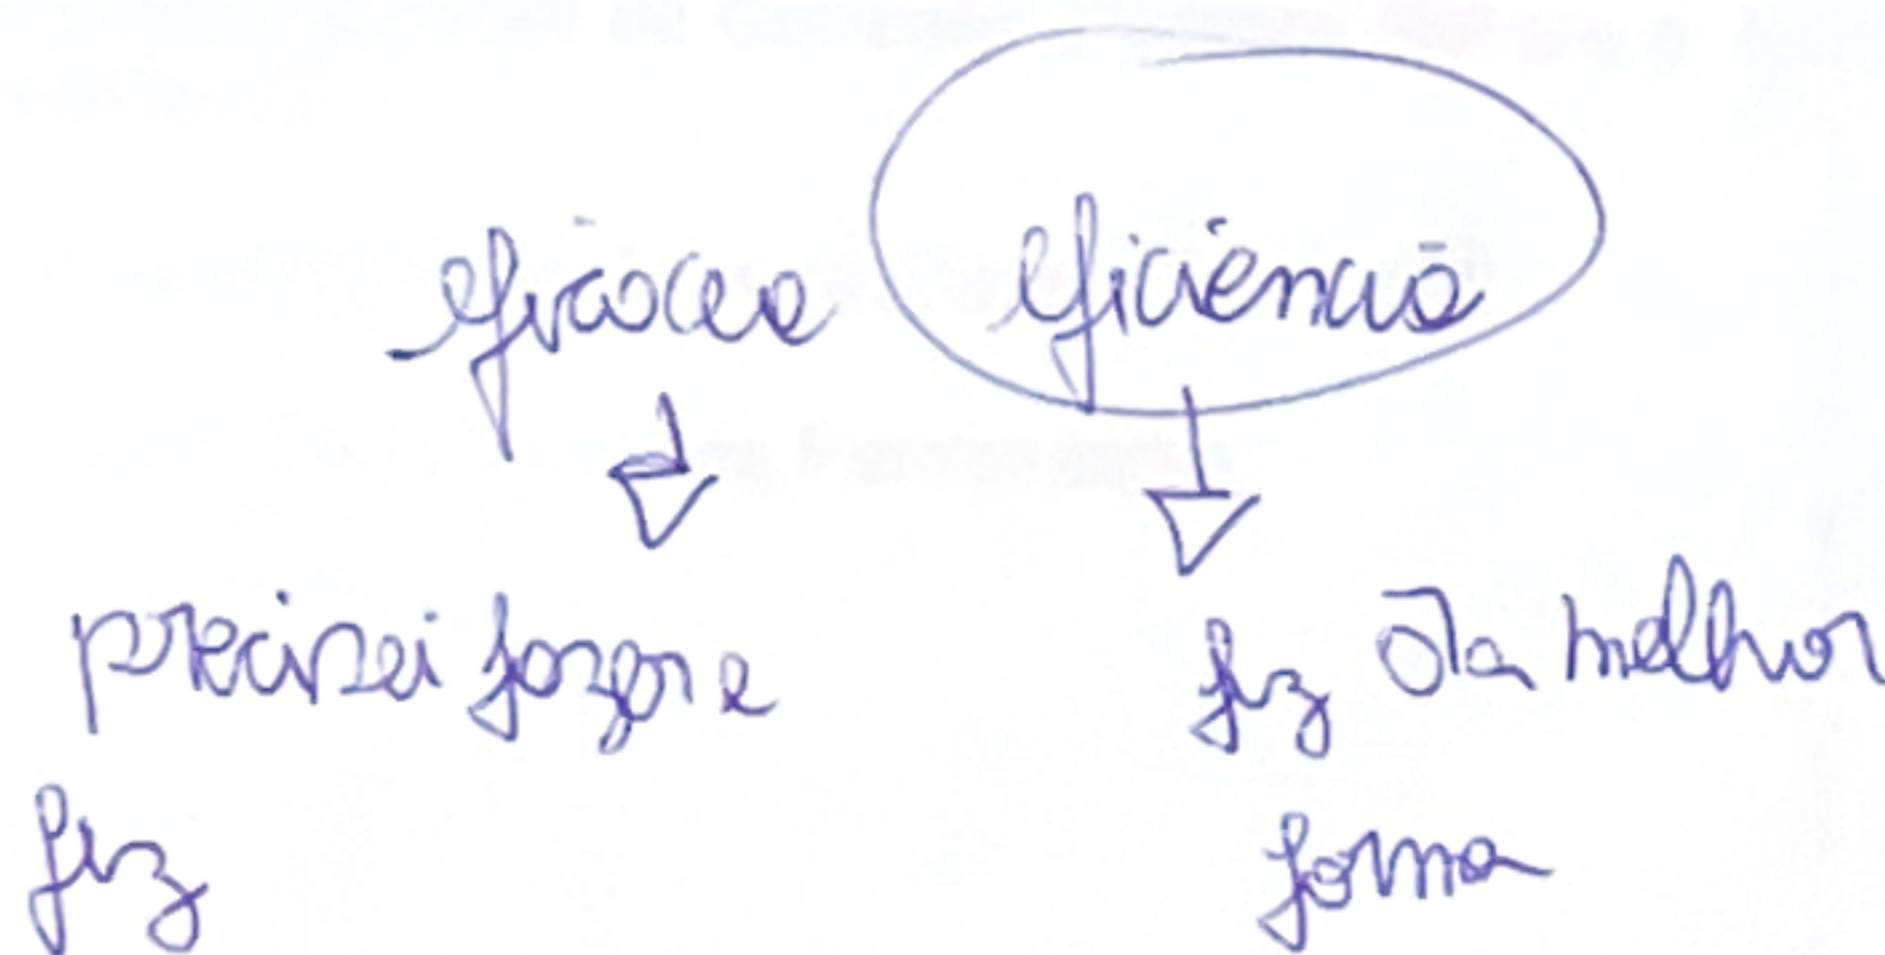 eficácia eficiência
precisei fazer e fiz da melhor
fiz forma